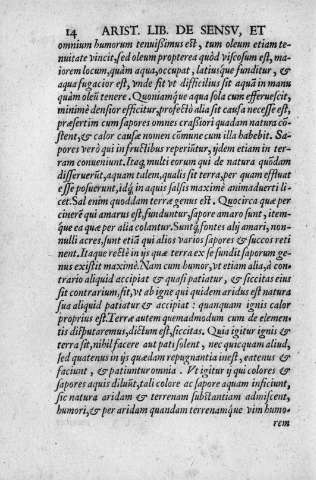 14 ARIST. LIB. DE SENSV, ET
omnium humorum tenuißimus est, tum oleum etiam te-
nuitate vincit, sed oleum propterea quòd viscosum est, ma-
iorem locum, quàm aqua, occupat, latiusque funditur, &
aqua fugacior est, vnde fit vt difficilius sit aquã in manu
quàm oleũ tenere. Quoniamque aqua sola cum efferuescit,
minimè densior efficitur, profectò alia sit causa necesse est,
præsertim cum sapores omnes crassiori quadam natura cõ-
stent, & calor causæ nomen cõmune cum illa habebit. Sa-
pores verò qui in fructibus reperiũtur, ijdem etiam in ter-
ram conueniunt. Itaq; multi eorum qui de natura quõdam
disseruerũt, aquam talem, qualis sit terra, per quam effluat
esse posuerunt, idq́; in aquis salsis maximè animaduerti li-
cet. Sal enim quoddam terræ genus est. Quocirca quæ per
cinerẽ qui amarus est, funduntur, sapore amaro sunt, item-
que ea quæ per alia colantur. Sunt q́; fontes alij amari, non-
nulli acres, sunt etiã qui alios varios sapores & succos reti
nent. Itaque rectè in ijs quæ terra ex se fundit saporum ge-
nus existit maximè. Nam cum humor, vt etiam alia, à con
trario aliquid accipiat & quasi patiatur, & siccitas eius
sit contrarium, fit, vt ab igne qui quidem aridus est natura
sua aliquid patiatur & accipiat: quanquam ignis calor
proprius est. Terræ autem quemadmodum cum de elemen-
tis disputaremus, dictum est, siccitas. Quia igitur ignis &
terra sit, nihil facere aut pati solent, nec quicquam aliud,
sed quatenus in ijs quædam repugnantia inest, eatenus &
faciunt, & patiuntur omnia. Vt igitur ij qui colores &
sapores aquis diluũt, tali colore ac sapore aquam inficiunt,
sic natura aridam & terrenam substantiam admiscent,
humori, & per aridam quandam terrenamque vim humo-
rem